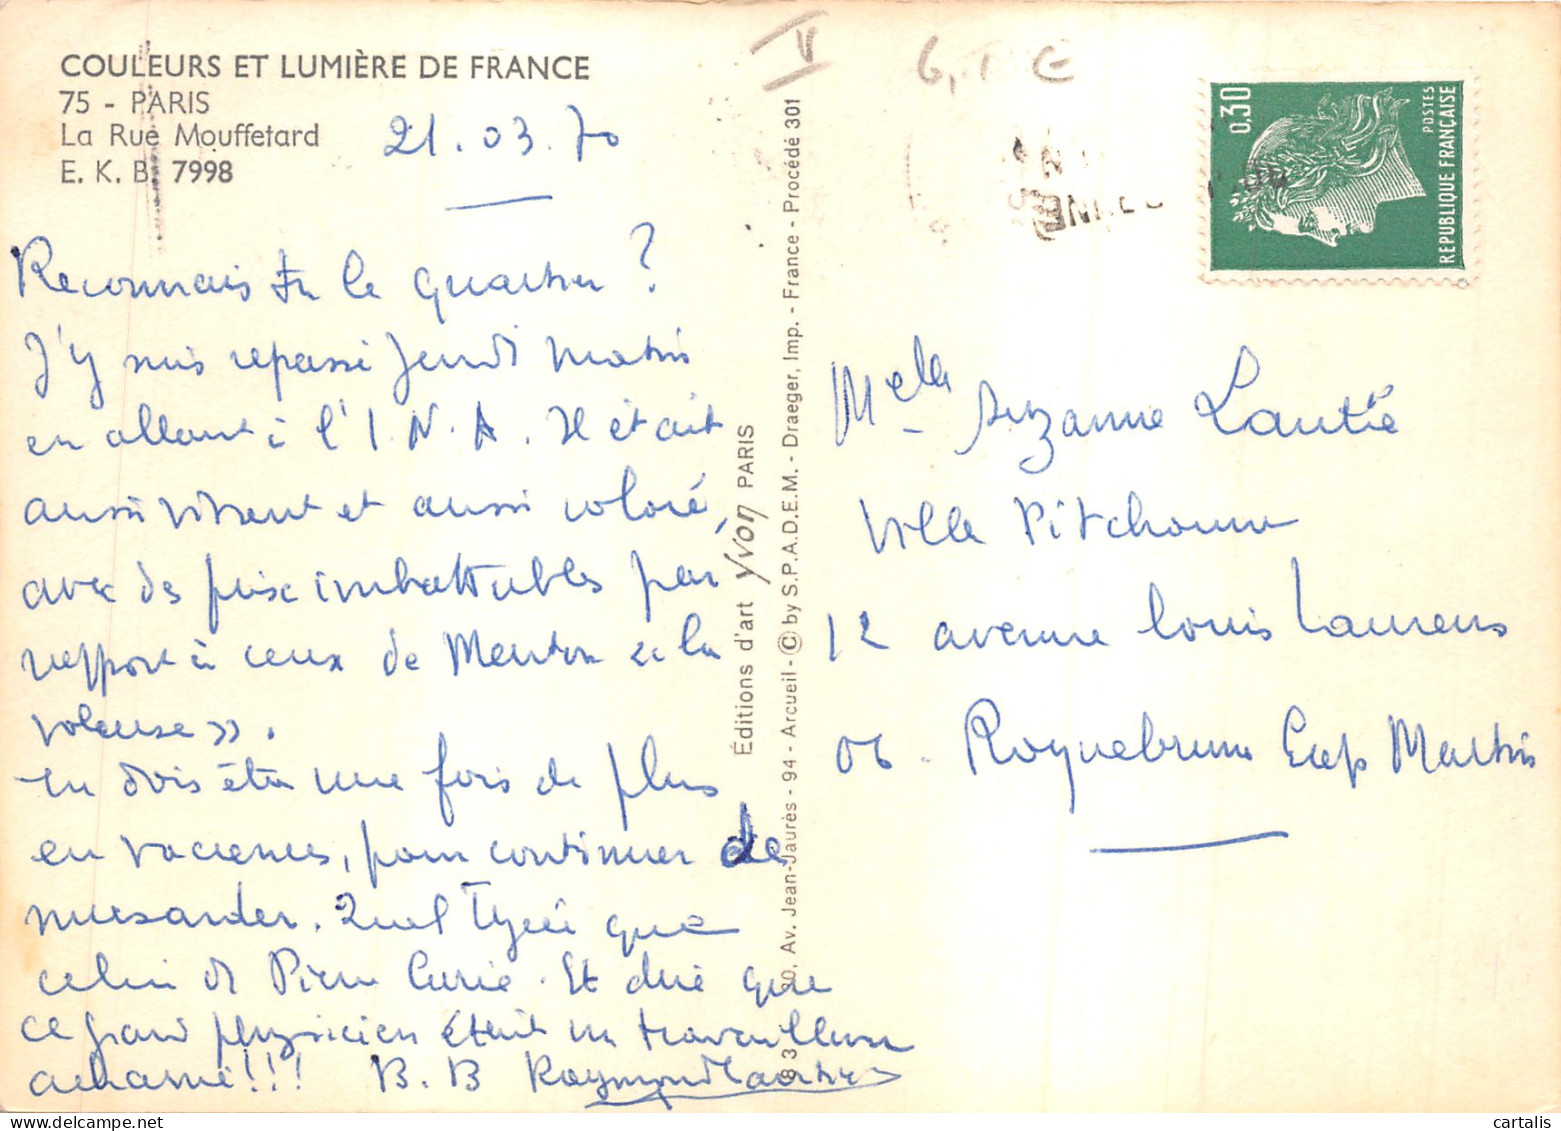 COULEURS ET LUMIÈRE DE FRANCE
75 - PARIS
La Rue Mouffetard
E. K. B. 7998
21.03.70
Reconnais tu le quartier ?
J'y suis repassé jeudi matin
en allant à l'I.N.A. Il était
aussi vivant et aussi coloré,
avec des prix imbattables par
rapport à ceux de Menton « la
voleuse ».
Tu dois être une fois de plus
en vacances, pour continuer de
musarder. Quel lycée que
celui de Pierre Curie. Et dire que
ce grand physicien était un travailleur
acharné!!! B. B Raymond
Éditions d'art Yvon PARIS
Av. Jean-Jaurès - 94 - Arcueil - © by S.P.A.D.E.M. - Draeger, Imp. - France - Procédé 301
V
G
0,30
POSTES
REPUBLIQUE FRANÇAISE
Melle Suzanne Lautié
Villa Pitchoune
12 avenue Louis Laurens
06. Roquebrune Cap Martin
cartalis